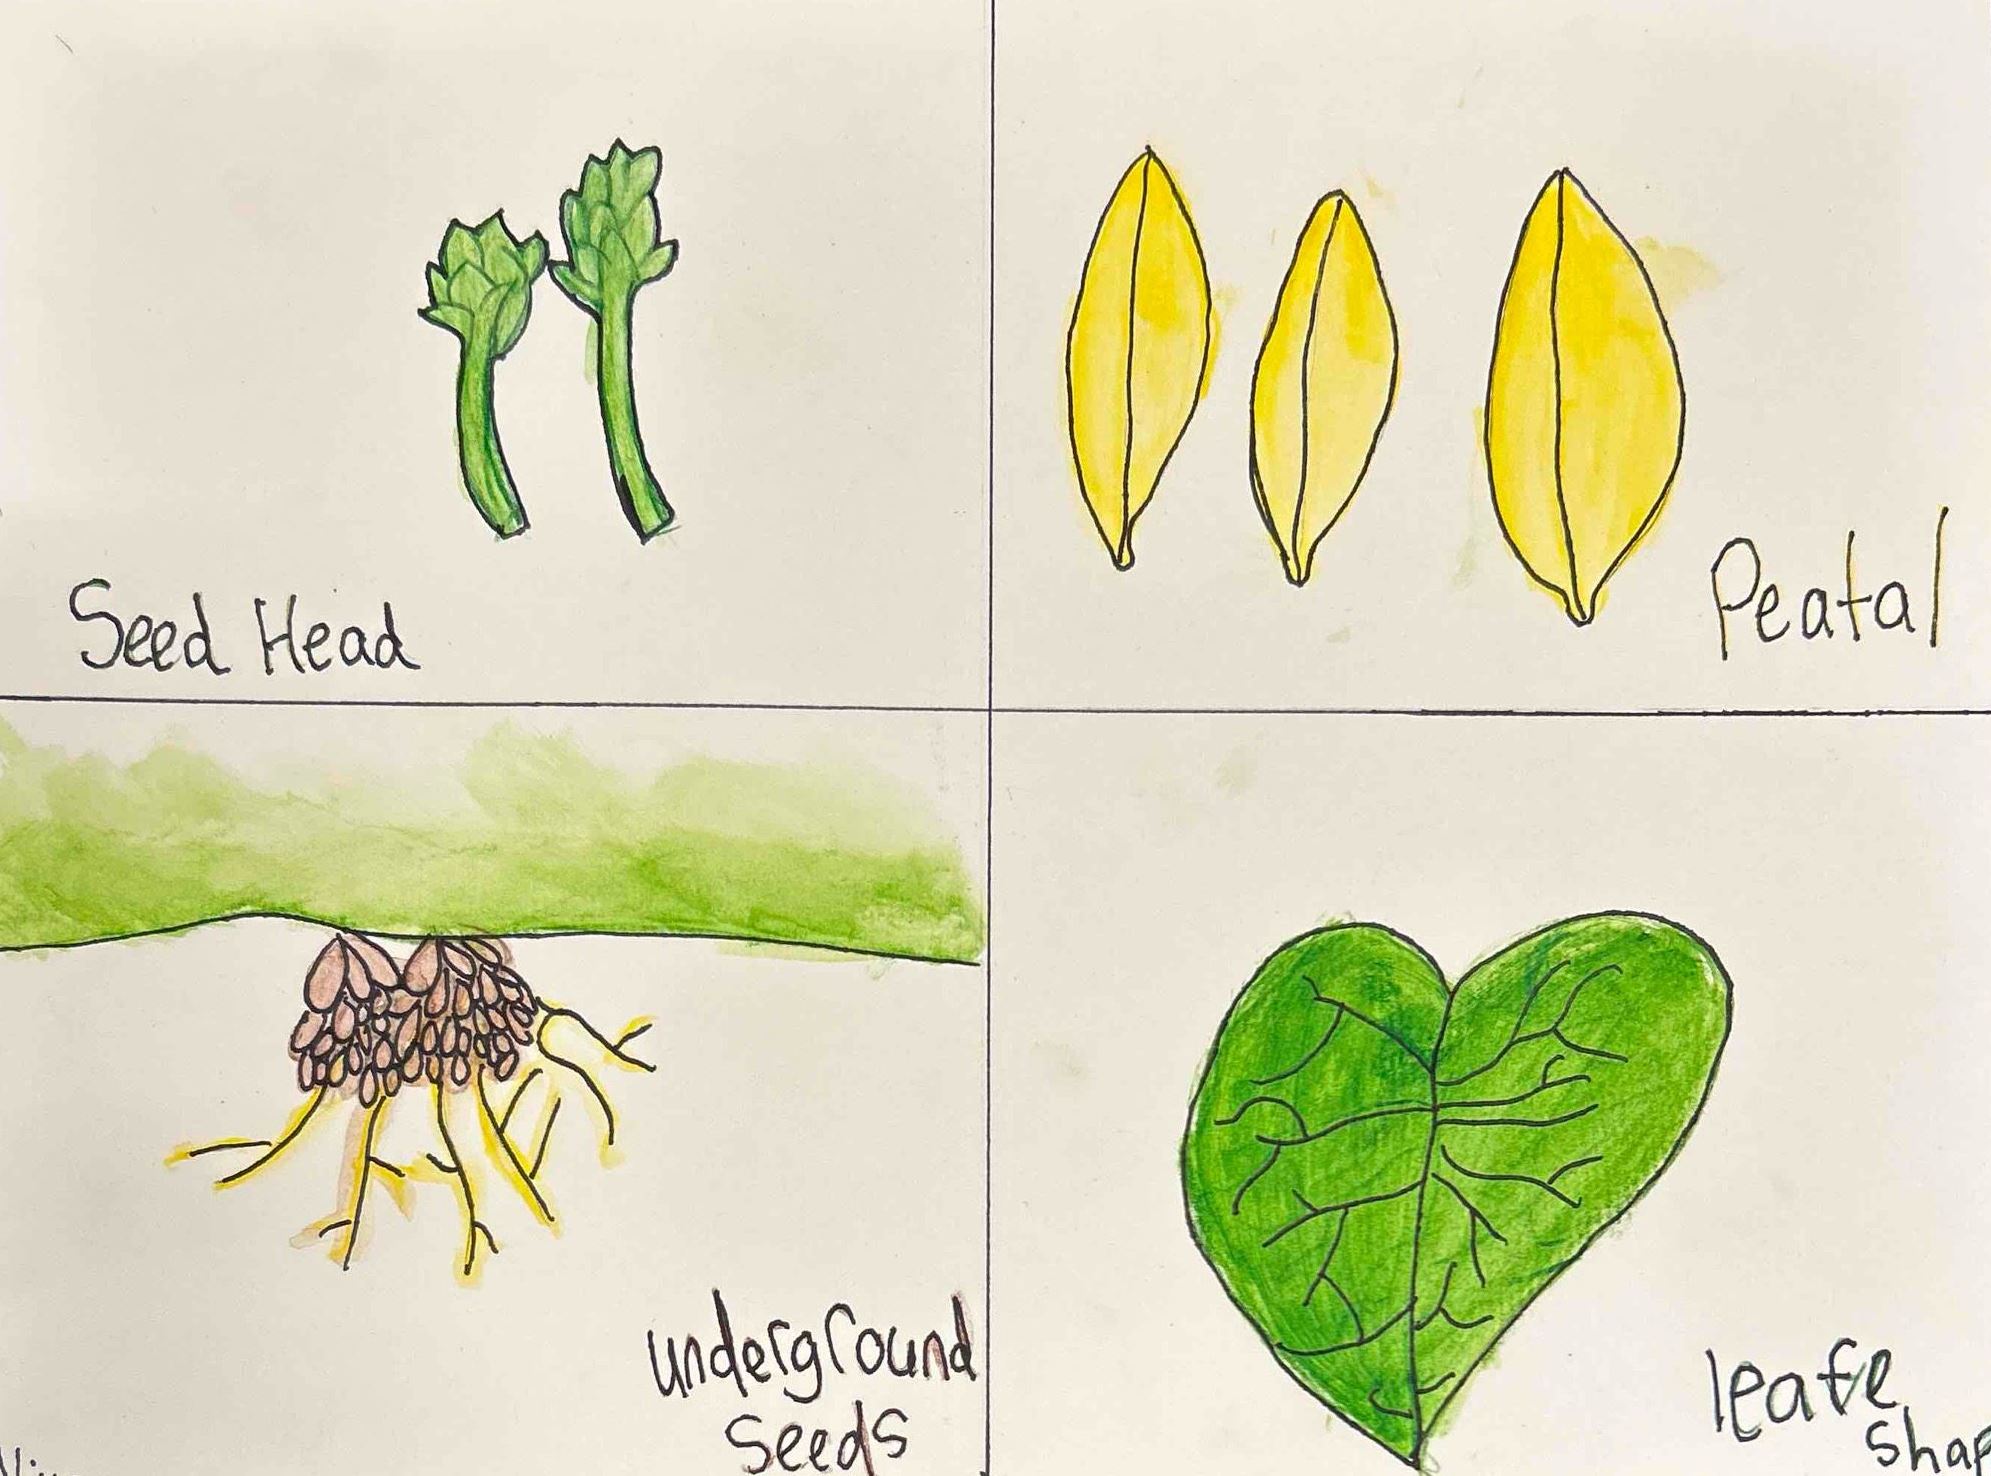 Seed Head
Peatal
underground
Seeds
leafe